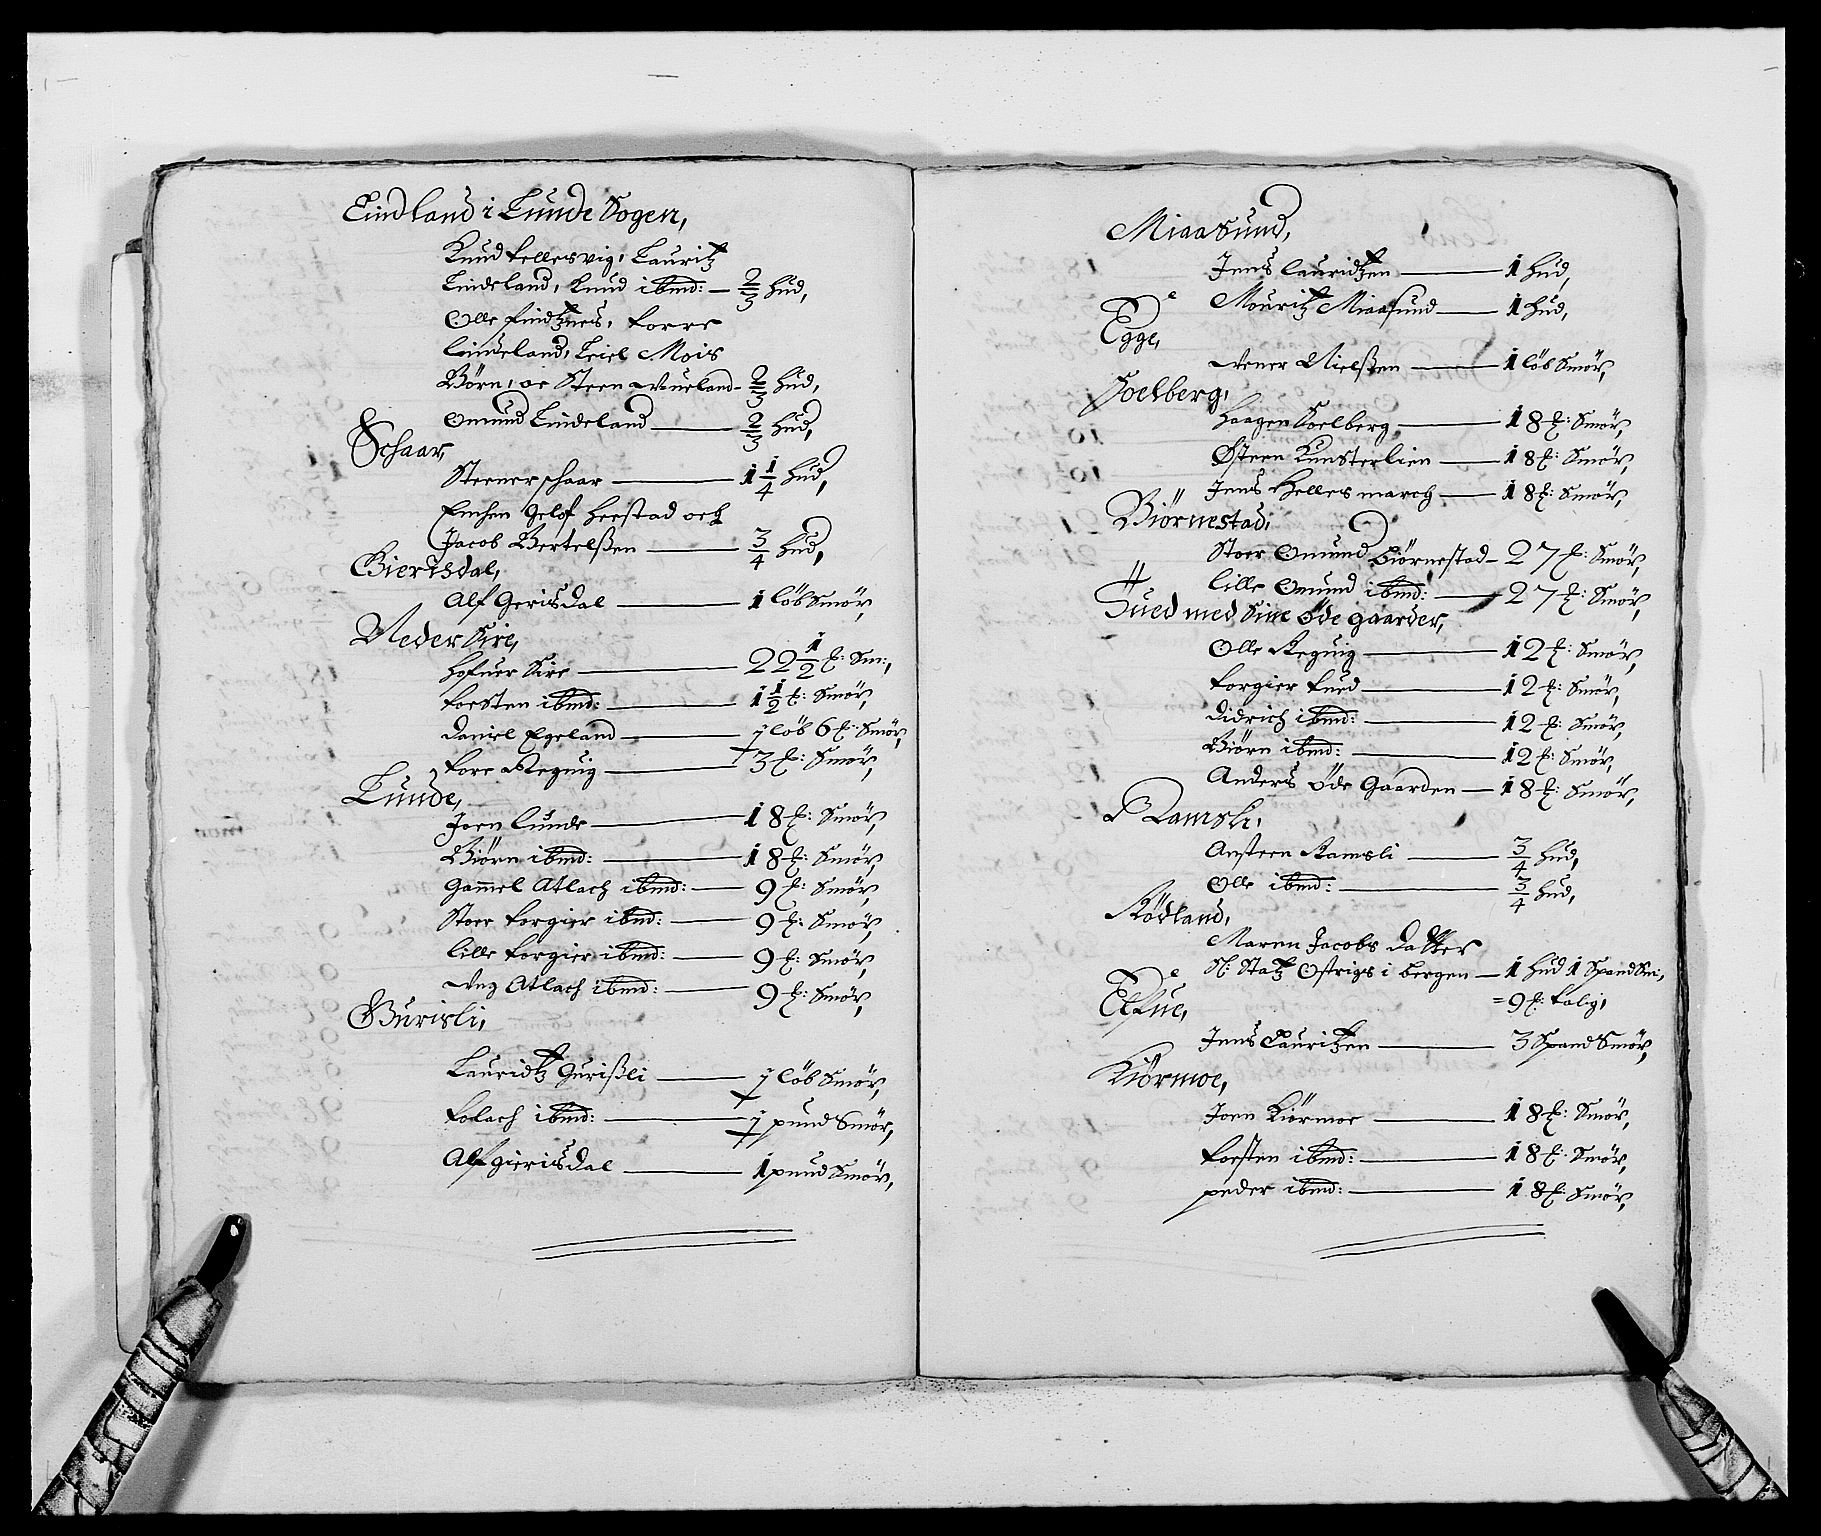 Lindland i Lunde Sogen,
Knud Fellesvig, Lauritz
Lindeland, Knud ibmd: — 2/3 hud,
Olle findtznes, Torre
Lindeland, Teiel Mois
Börn, oc Steen Vueland – 2/3 hud,
Omund Lindeland — 2/3 hud,
Schaar,
Steener schaar — 1 1/4 hud,
Enchen Gelof heestad och
Jacob Bertelßen — 3/4 hud,
Gierisdal,
Alf Gerisdal — 1 löb Smör,
Neder Sire,
Sire — 22 1/2 ℔: Sm:,
Torsten ibmd: — 1 1/2 ℔: Smör,
Daniel Egeland — j löb 6 ℔: Smör,
Tore Reguig — 3 ℔: Smör,
Lunde,
Joen Lunde — 18 ℔: Smör,
Biörn ibmd: — 18 ℔: Smör,
Gammel Atlach ibmd: — 9 ℔: Smör,
Stoer Torgier ibmd: — 9 ℔: Smör,
lille Torgier ibmd: — 9 ℔: Smör,
Vng Atlach ibmd: — 9 ℔: Smör,
Gurisli,
Lauridtz Gurißli — j löb Smör,
Tolach ibmd: — j pund Smör,
Alf gierisdal — 1 pund Smör,
Miaasund,
Jens Lauridtzen — 1 hud,
Mouritz Miaasund — 1 hud,
Egge,
Vener Nielßen — 1 löb Smör,
Soelberg,
Haagen Soelberg — 18 ℔: Smör,
Østeen Kunsterlien — 18 ℔: Smör,
Jens Hellesmarch — 18 ℔: Smör,
Biörnestad,
Stoer Omund Biörnestad – 27 ℔: Smör,
lille Omund ibmd: — 27 ℔: Smör,
Tued med Sine Öde gaarder,
Olle Reguig — 12 ℔: Smör,
Torgier Tued — 12 ℔: Smör,
Didrich ibmd: — 12 ℔: Smör,
Biörn ibmd: — 12 ℔: Smör,
Anders Öde Gaarden — 18 ℔: Smör,
Ramsli,
Ansteen Ramsli — 3/4 hud,
Olle ibmd: — 3/4 hud,
Rödland,
Maren Jacobs datter
Sl: Østriges i bergen — 1 hud 1 Spand Sm,
= 9 ℔: Talig,
Elfue,
Jens Lauritzen — 3 Spand Smör,
Kiörmoe,
Joen Kiörmoe — 18 ℔: Smör,
Torsten ibmd: — 18 ℔: Smör,
peder ibmd: — 18 ℔: Smör,